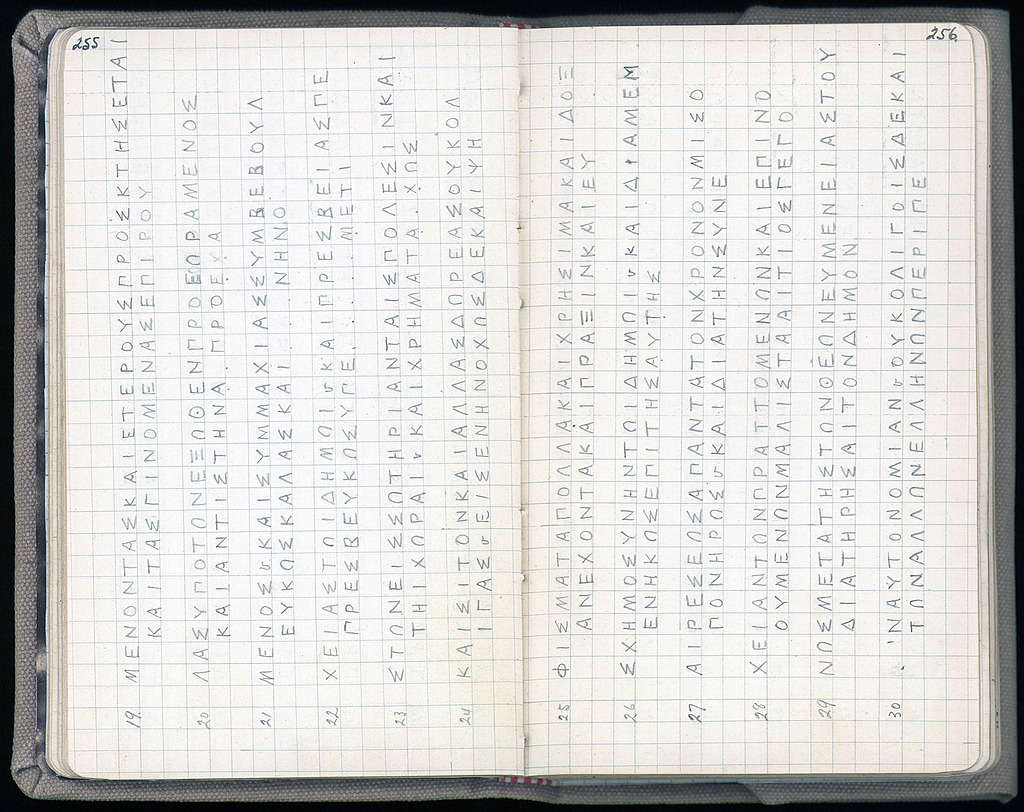 255
19. ΜΕΝΟΝΤΑΣΚΑΙΕΤΕΡΟΥΣΠΡΟΣΚΤΗΣΕΤΑΙ
ΚΑΙΤΑΣΓΙΝΟΜΕΝΑΣΕΠΙΡΟΥ
20 ΛΑΣΥΠΟΤΩΝΕΞΩΘΕΝΠΡΟΕΩΡΑΜΕΝΟΣ
ΚΑΙΑΝΤΙΣΤΗΝΑ.ΠΡΟΕΚΑ
21 ΜΕΝΟΣ𐅵ΚΑΙΣΥΜΜΑΧΙΑΣΣΥΜΒΕΒΟΥΛ
ΕΥΚΩΣΚΑΛΑΣΚΑΙ.....ΝΗΝΟ
22 ΧΕΙΑΣΤΩΙΔΗΜΩΙ𐅵ΚΑΙΠΡΕΣΒΕΙΑΣΠΕ
ΠΡΕΣΒΕΥΚΩΣΥΠΕ.......ΜΕΤΙ
23 ΣΤΩΝΕΙΣΣΩΤΗΡΙΑΝΤΑΙΣΠΟΛΕΣΙΝΚΑΙ
ΤΗΙΧΩΡΑΙ𐅵ΚΑΙΧΡΗΜΑΤΑ.ΧΩΣ
24 ΚΑΙΣΙΤΟΝΚΑΙΑΛΛΑΣΔΩΡΕΑΣΟΥΚΟΛ
ΙΓΑΣ𐅵ΕΙΣΕΝΗΝΟΧΩΣΔΕΚΑΙΨΗ
256
25 ΦΙΣΜΑΤΑΠΟΛΛΑΚΑΙΧΡΗΣΙΜΑΚΑΙΔΟΞ
ΑΝΕΧΟΝΤΑΚΑΙΠΡΑΞΙΝΚΑΙΕΥ
26 ΣΧΗΜΟΣΥΝΗΝΤΩΙΔΗΜΩΙ𐅵ΚΑΙΔΙΑΜΕΜ
ΕΝΗΚΩΣΕΠΙΤΗΣΑΥΤΗΣ
27 ΑΙΡΕΣΕΩΣΑΠΑΝΤΑΤΟΝΧΡΟΝΟΝΜΙΣΟ
ΠΟΝΗΡΩΣ𐅵ΚΑΙΔΙΑΤΗΝΣΥΝΕ
28 ΧΕΙΑΝΤΩΝΠΡΑΤΤΟΜΕΝΩΝΚΑΙΕΠΙΝΟ
ΟΥΜΕΝΩΝΜΑΛΙΣΤΑΑΙΤΙΟΣΓΕΓΟ
29 ΝΩΣΜΕΤΑΤΗΣΤΩΝΘΕΩΝΕΥΜΕΝΕΙΑΣΤΟΥ
ΔΙΑΤΗΡΗΣΑΙΤΟΝΔΗΜΟΝ
30 .'ΝΑΥΤΟΝΟΜΙΑΝ𐅵ΟΥΚΟΛΙΓΟΙΣΔΕΚΑΙ
ΤΩΝΑΛΛΩΝΕΛΛΗΝΩΝΠΕΡΙΠΕ